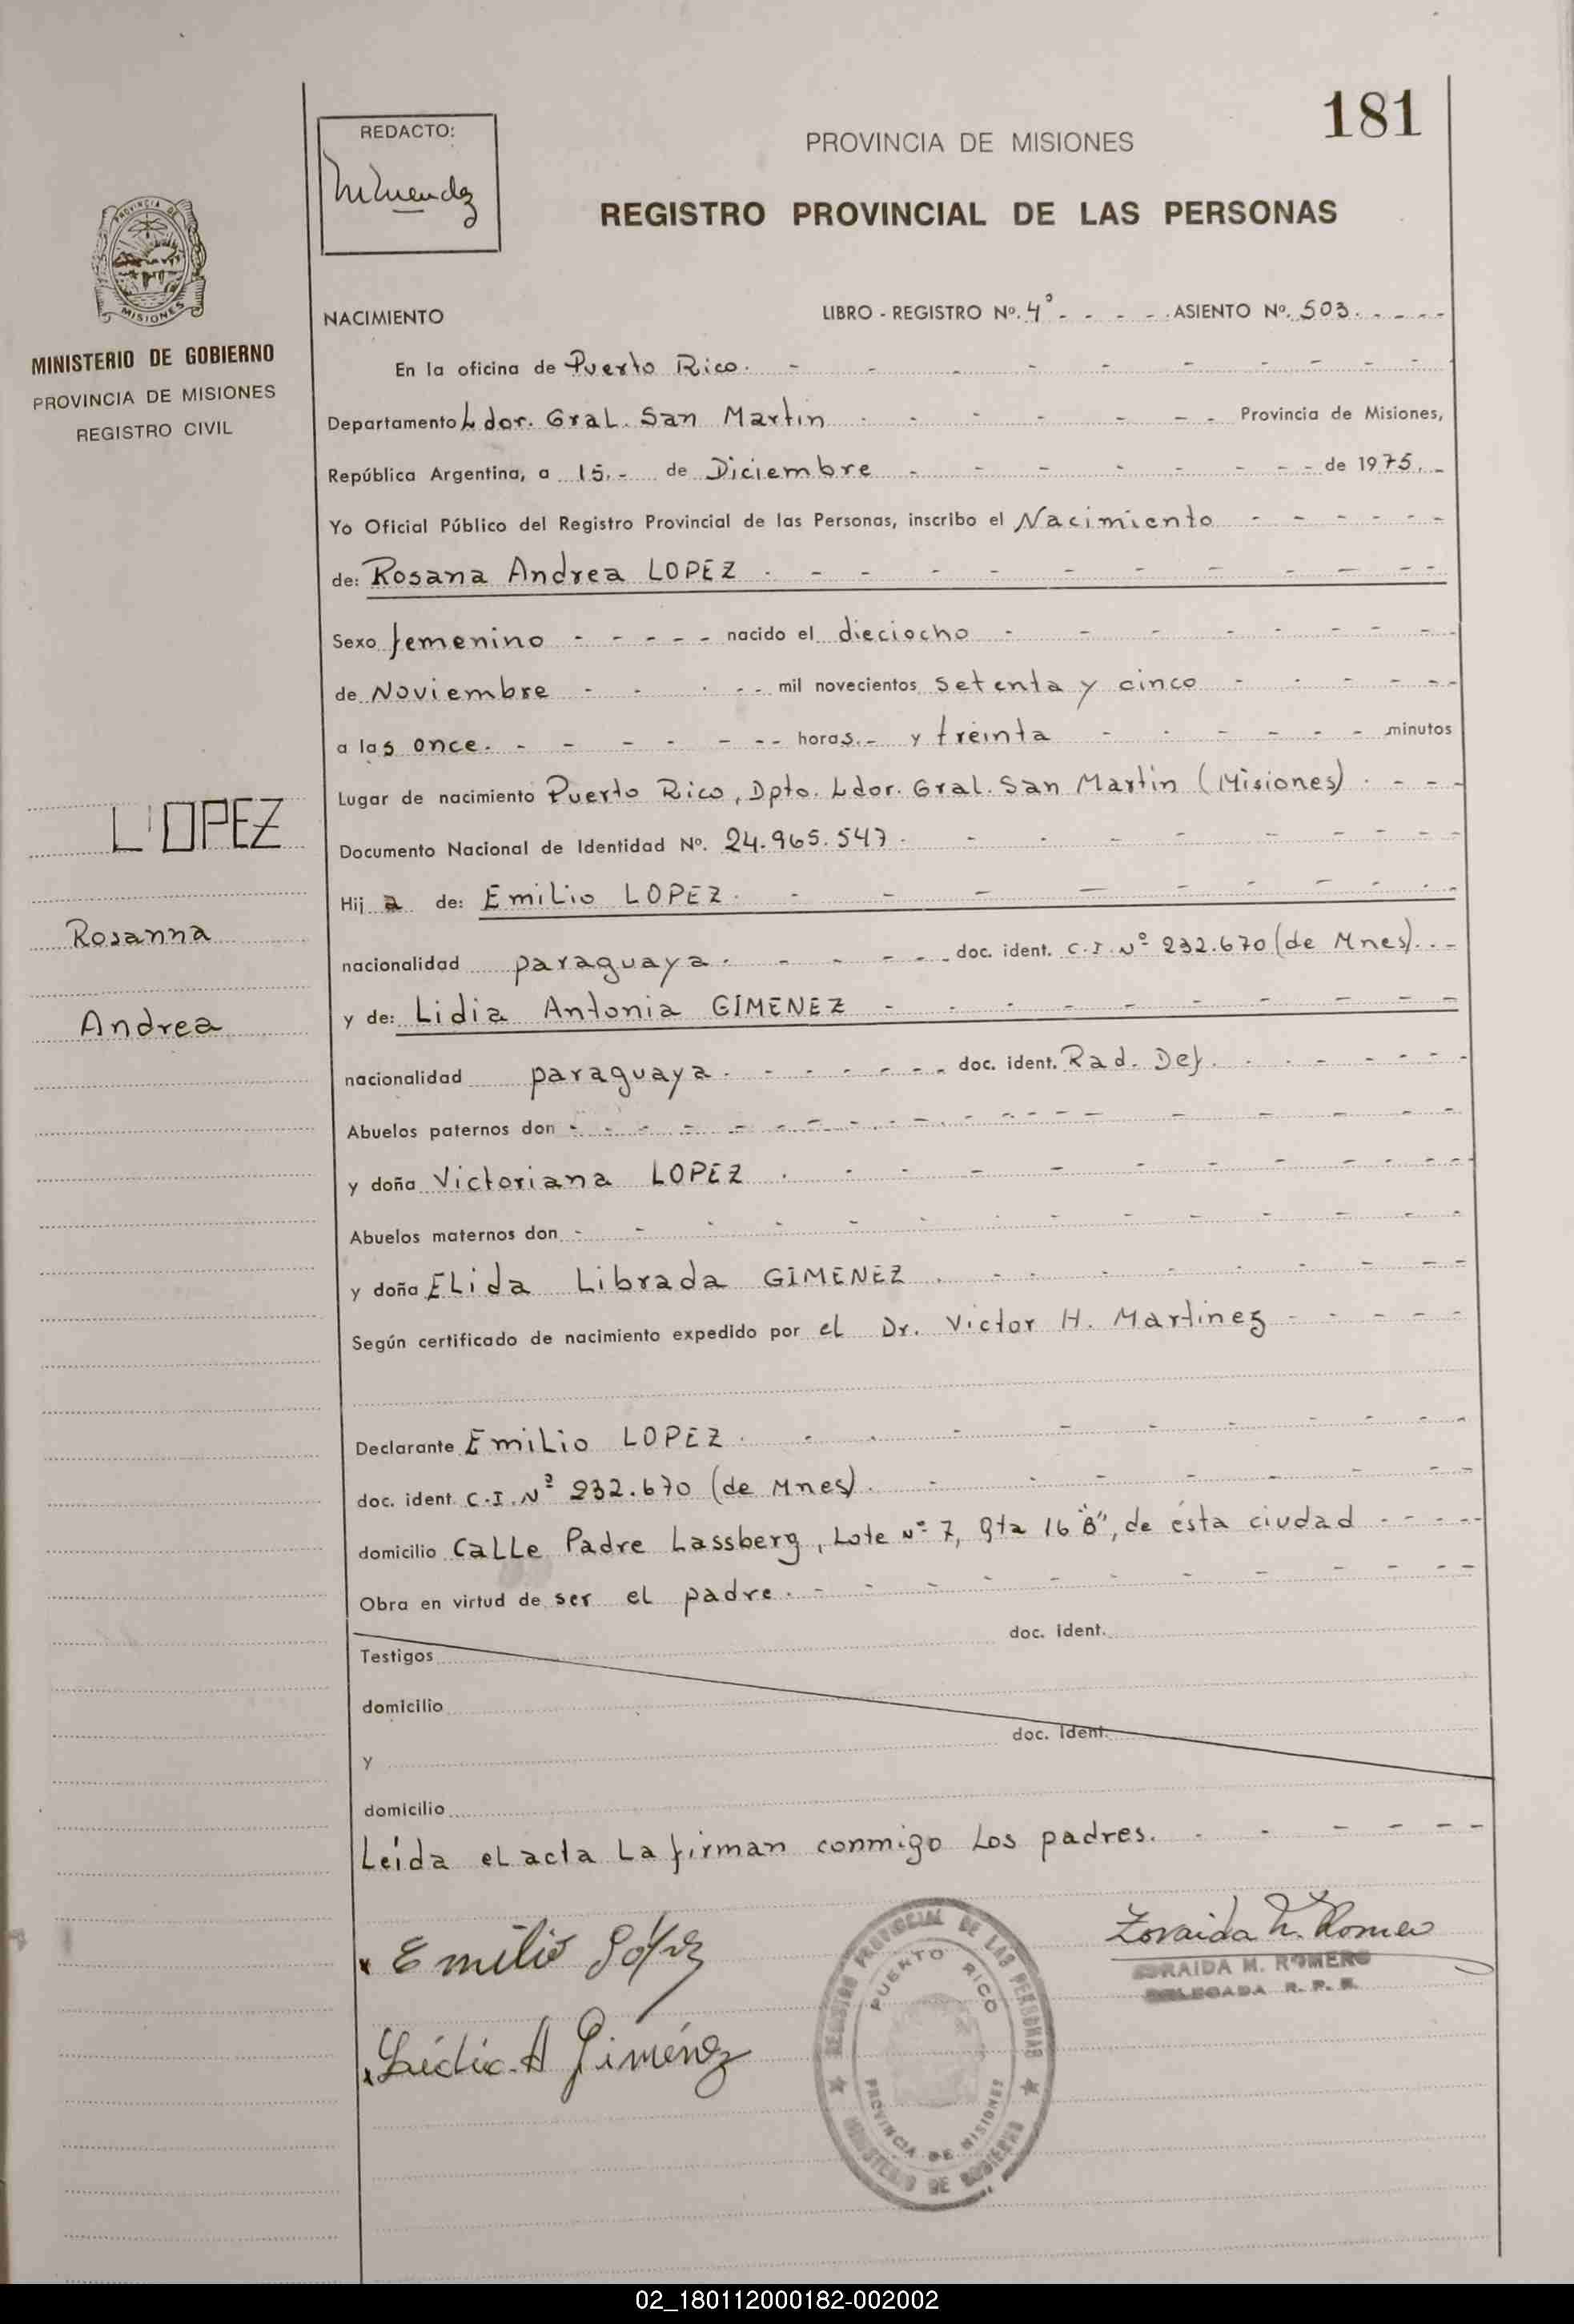 181
REDACTO:
PROVINCIA DE MISIONES
REGISTRO PROVINCIAL DE LAS PERSONAS
PROVINCIA DE
MISIONES
MINISTERIO DE GOBIERNO
PROVINCIA DE MISIONES
REGISTRO CIVIL
LOPEZ
Rosanna
Andrea
NACIMIENTO LIBRO - REGISTRO Nº. 4º - - - - ASIENTO Nº. 503. - - - -
En la oficina de Puerto Rico. - - - - - - - - -
Departamento Ldor. Gral. San Martin - - - - - - Provincia de Misiones,
República Argentina, a 15.- de Diciembre - - - - - - - de 1975. -
Yo Oficial Público del Registro Provincial de las Personas, inscribo el Nacimiento - - - - - -
de: Rosana Andrea LOPEZ . - - - - - - - - - - -
Sexo femenino - - - - - nacido el dieciocho - - - - - - - -
de Noviembre - - - - - mil novecientos setenta y cinco - - - - - -
a las once. - - - - - - - horas.- y treinta - - - - - - minutos
Lugar de nacimiento Puerto Rico, Dpto. Ldor. Gral. San Martin (Misiones) . - - -
Documento Nacional de Identidad Nº. 24.965.547 . - - - - - - -
Hij a de: Emilio LOPEZ. - - - - - - - - -
nacionalidad paraguaya. - - - - - doc. ident. C.I. Nº 232.670 (de Mnes). . -
y de: Lidia Antonia GIMENEZ - - - - - - - - -
nacionalidad paraguaya. - - - - - - doc. ident. Rad. Def. - - - - - -
Abuelos paternos don - - - - - - - - - - - - - -
y doña Victoriana LOPEZ . - - - - - - - - - -
Abuelos maternos don - - - - - - - - - - - -
y doña Elida Librada GIMENEZ . - - - - - - - -
Según certificado de nacimiento expedido por el Dr. Victor H. Martinez - - - - -
Declarante Emilio LOPEZ . - - - - - - - - -
doc. ident. C.I. Nº 232.670 (de Mnes). - - - - - - - -
domicilio Calle Padre Lassberg, Lote Nº 7, Qta 16 "B", de ésta ciudad - - - - -
Obra en virtud de ser el padre. - - - - - - - - - -
doc. ident.
Testigos
domicilio
doc. ident.
y
domicilio
Leída el acta la firman conmigo los padres. - - - - - -
Emilio López
Lidia A Giménez
REGISTRO PROVINCIAL DE LAS PERSONAS
PUERTO RICO
PROVINCIA DE MISIONES
MINISTERIO DE GOBIERNO
Zoraida M. Romero
ZORAIDA M. ROMERO
DELEGADA R. P. P.
02_180112000182-002002